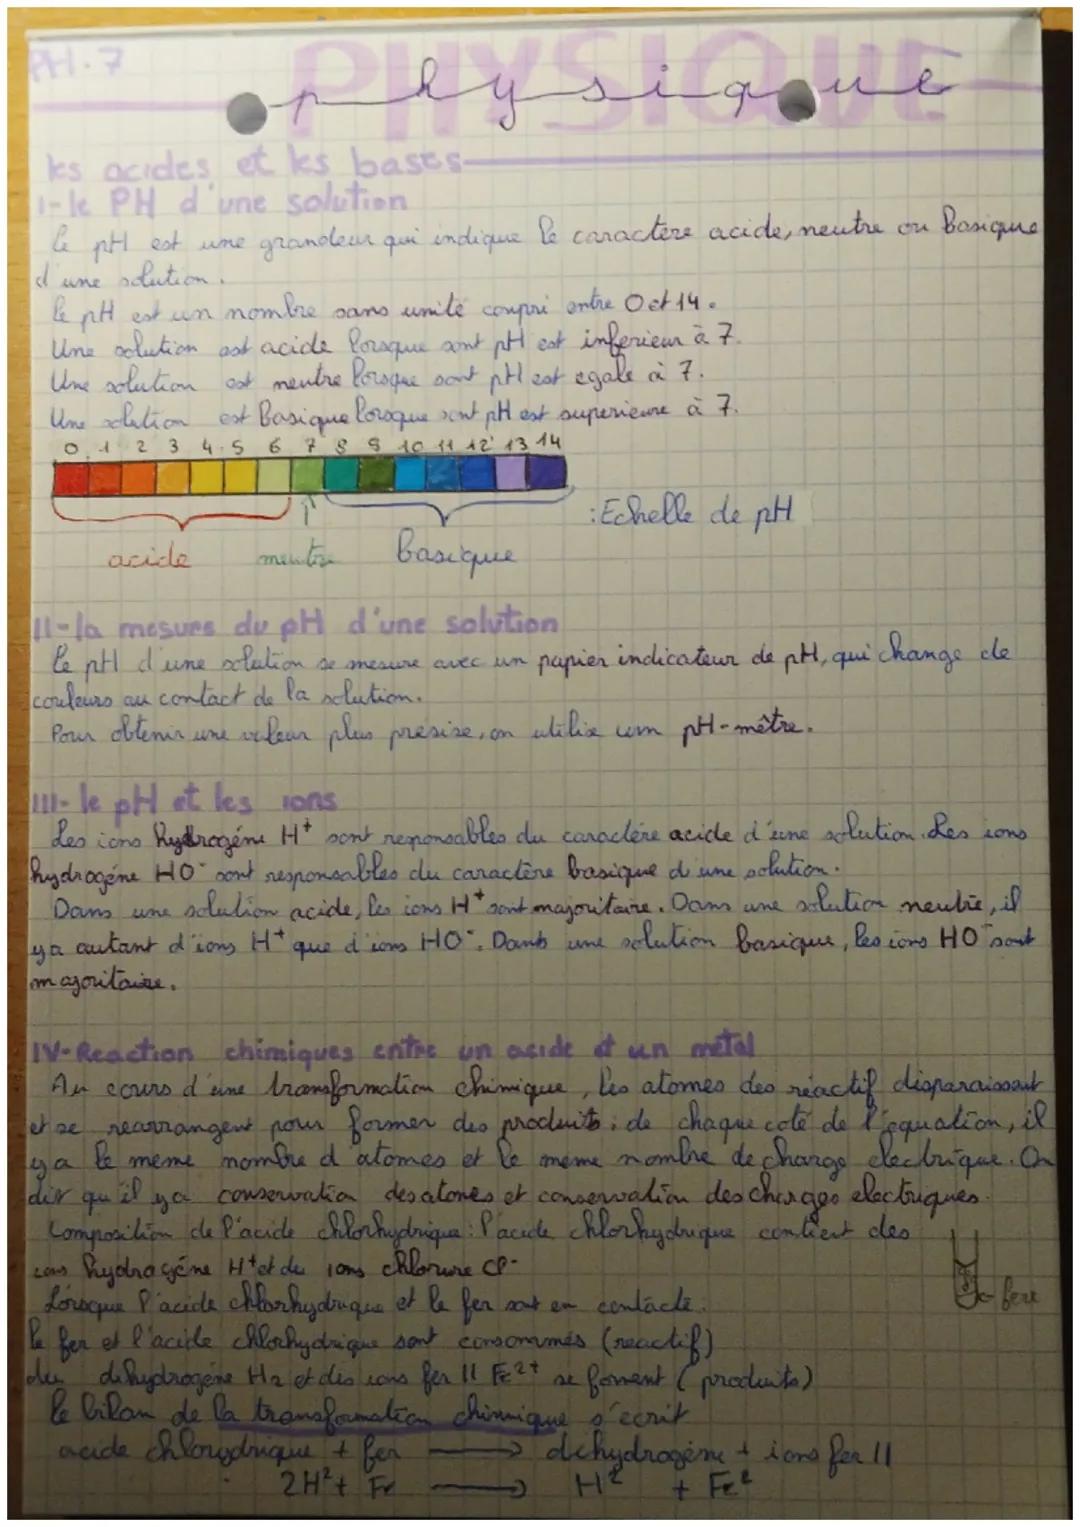 PH.7
PHYSIQUE
physique
les acides et les bases
I-le PH d'une solution
le pH est une grandeur qui indique le caractère acide, neutre ou basique
d'une solution.
le pH est un nombre sans unité compri entre 0 et 14.
Une solution est acide lorsque sont pH est inferieur à 7.
Une solution est neutre lorsque sont pH est egale à 7.
Une solution est basique lorsque sont pH est superieure à 7.
0 1 2 3 4 5 6 7 8 9 10 11 12 13 14
: Echelle de pH
acide neutre basique
II-la mesure du pH d'une solution
le pH d'une solution se mesure avec un papier indicateur de pH, qui change de
couleurs au contact de la solution.
Pour obtenir une valeur plus presise, on utilise un pH-mêtre.
III-le pH et les ions
Les ions hydrogéne H+ sont reponsables du caractère acide d'une solution. Les ions
hydrogéne HO- sont responsables du caractère basique d'une solution.
Dans une solution acide, les ions H+ sont majoritaire. Dans une solution neutre, il
y a autant d'ions H+ que d'ions HO-. Dans une solution basique, les ions HO- sont
majoritaire.
IV-Reaction chimiques entre un acide et un métal
Au cours d'une transformation chimique, les atomes des réactif disparaissent
et se rearrangent pour former des produits : de chaque coté de l'equation, il
y a le meme nombre d'atomes et le meme nombre de charge electrique. On
dit qu'il y a conservation des atomes et conservation des charges electriques.
Composition de l'acide chlorhydrique : l'acide chlorhydrique contient des
ions hydrogéne H+ et des ions chlorure Cl-
Lorsque l'acide chlorhydrique et le fer sont en contacte.
le fer et l'acide chlorhydrique sont consommés (reactif)
du dihydrogéne H2 et des ions fer II Fe2+ se forment (produits)
le bilan de la transformation chimique s'ecrit
acide chlorydrique + fer → dihydrogéne + ions fer II
2H²+ Fe → H² + Fe²